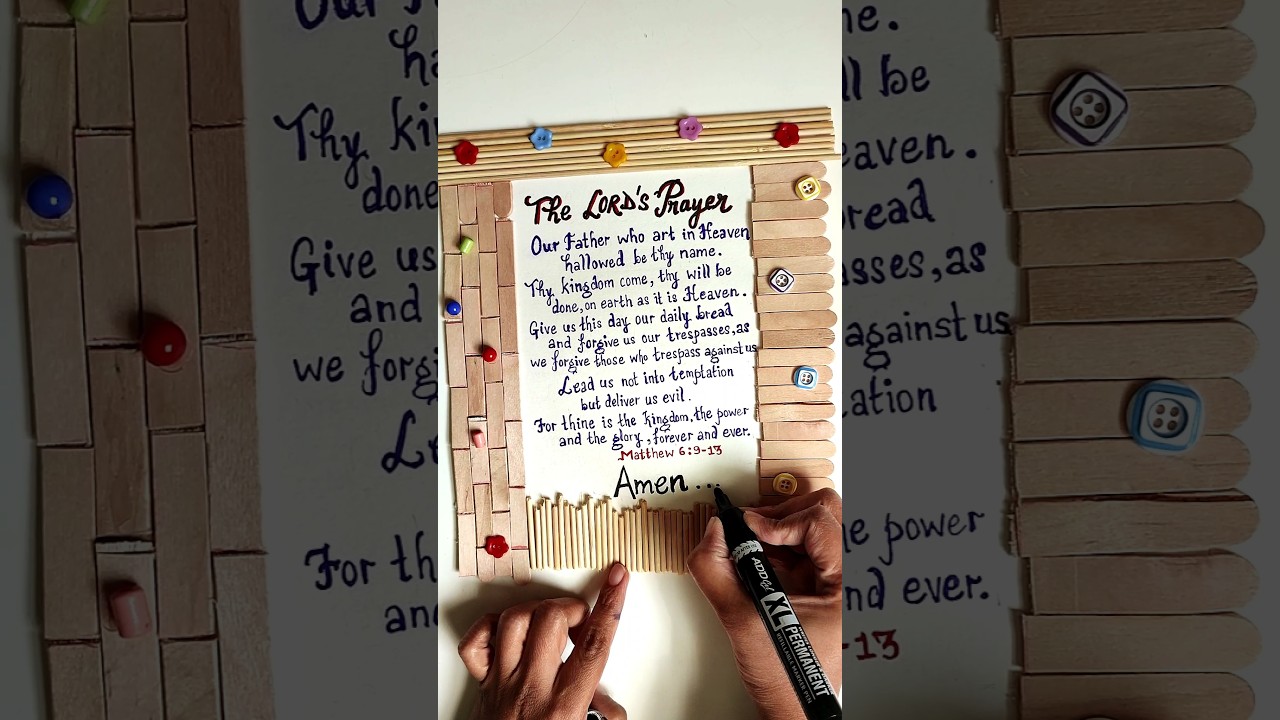 The LORD's Prayer
Our Father who art in Heaven
hallowed be thy name.
Thy kingdom come, thy will be
done, on earth as it is Heaven.
Give us this day our daily bread
and forgive us our trespasses, as
we forgive those who trespass against us
Lead us not into temptation
but deliver us evil.
For thine is the kingdom, the power
and the glory, forever and ever.
Matthew 6:9-13
Amen...
ADD Gel
XL
PERMANENT